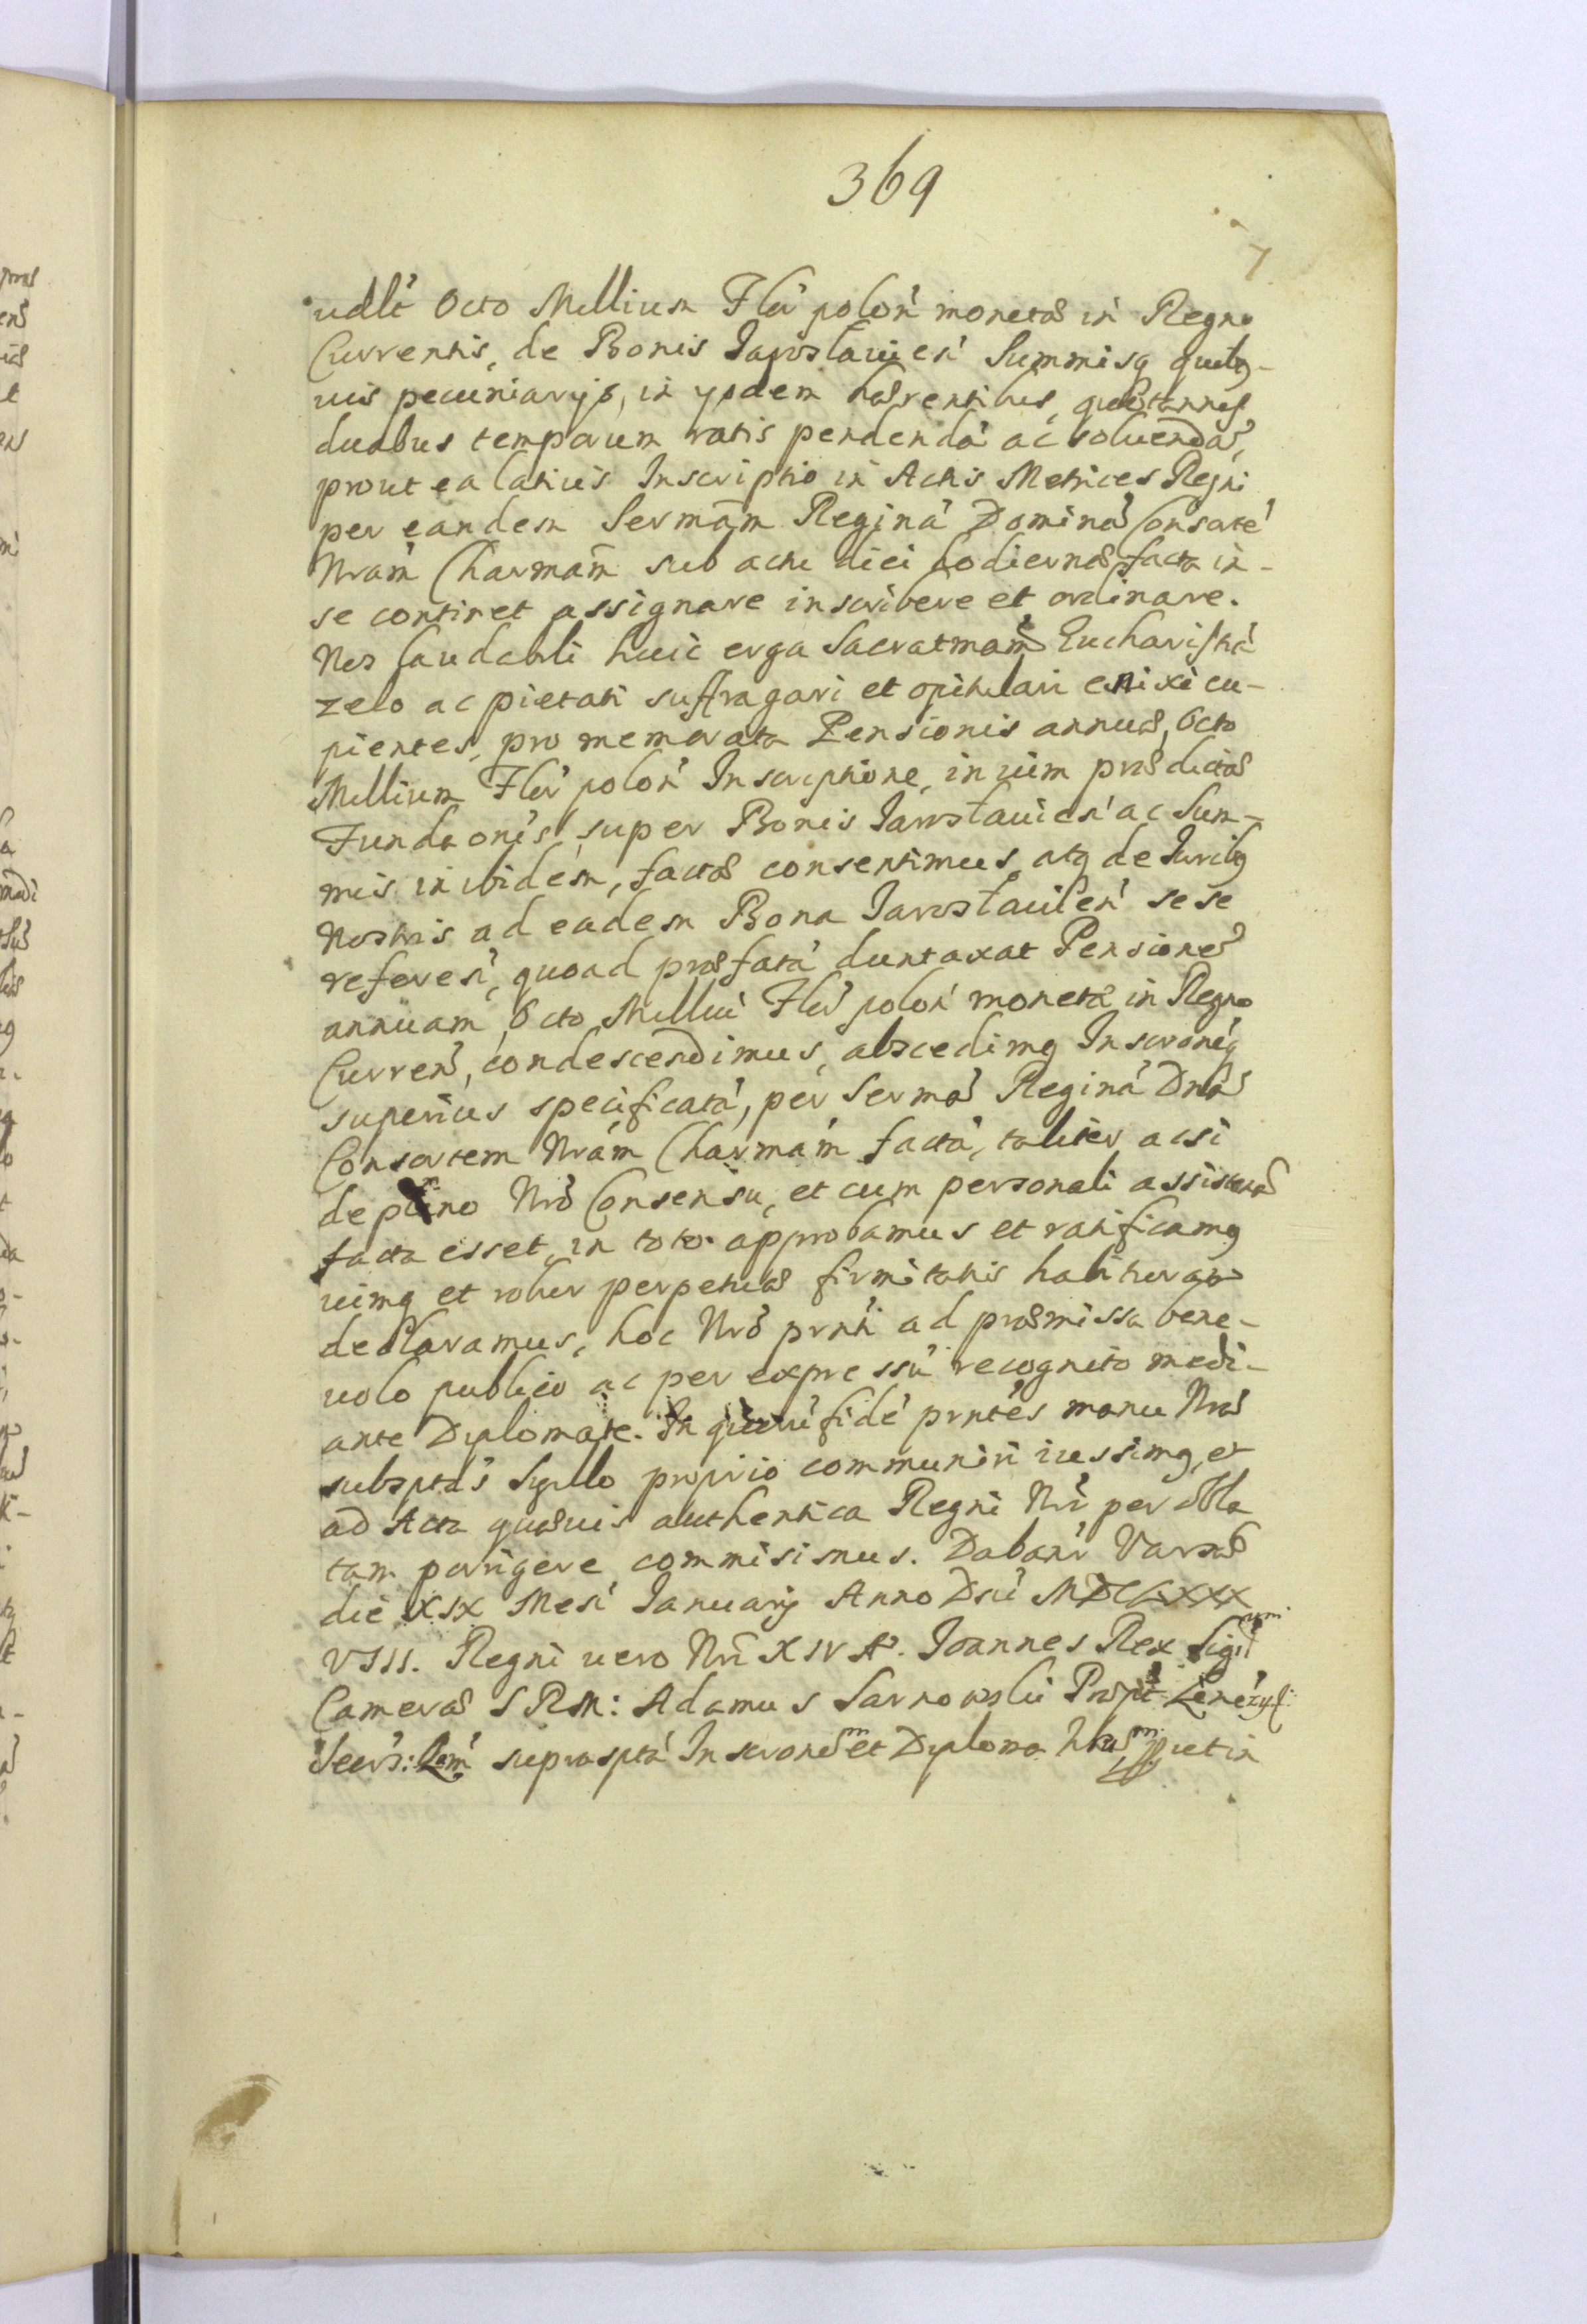 369
7
udlt Octo Millium Flõr polon monetæ in Regno
Currentis, de Bonis Jarosłauien Summisq quibq-
uis pecuniarijs, in ysdem hærentibus, quotannis
duabus temporum ratis pendendã ac soluendã,
prout ea latius Inscriptio in Actis Metrices Regni
per eandem Sermãm Reginã Dominã Consortẽ
Nrãm Charmãm sub actu diei hodiernæ facta in-
se continet assignare inscribere et ordinare.
Nos laudabili huic erga Sacratmãm Eucharistiã
zelo ac pietati suffragari et opitulari enixe cu-
pientes, pro memorata Pensionis annuæ, Octo
Millium Flõr polon Inscriptione, in vim prædictæ
Fundaõnis, super Bonis Jarosłauien ac Sum-
mis inibidem, factæ consentimus, atq de Juribq
Nostris ad eadem Bona Jarosłauien sese
referen, quoad præfatã duntaxat Pensionẽ
annuam, Octo Milliũ Flõr polon monetæ in Regno
Curren, condescendimus, abscedimq Inscrõnẽq
superius specificatã, per Sermã Reginã Dnã
Consortem Nrãm Charmãm factã, taliter acsi
de pleno Nrõ Consensu, et cum personali assistentiã
facta esset, in toto approbamus et ratificamq
uimq et robur perpetuæ firmitatis habituram
declaramus, hoc Nrõ prñti ad præmissa bene-
uolo publico ac per expressũ recognito medi-
ante Diplomate. In quorũ fidẽ prñtes manu Nrã
subsptas Sigillo proprio communiri iussimq, et
ad Acta quæuis authentica Regni Nrĩ per Obla
tam porrigere commisimus. Dabantr Varsæ
die XIX Mesi Januarij Anno Dnĩ MDCLXXX
VIII. Regni vero Nrĩ XIV Aº. Joannes Rex Sigillum
Cameræ S R M: Adamus Sarnowski Præpt
supraspta Inscrõnem et Diploma